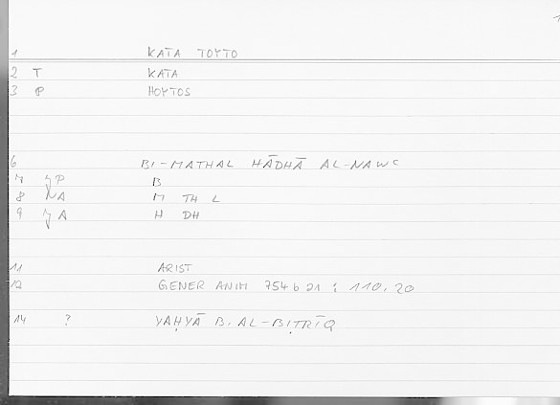 1 KATA TOYTO
2 T KATA
3 P HOYTOS
6 BI-MATHAL HĀDHĀ AL-NAWC
7 YP B
8 NA M TH L
9 YA H DH
11 ARIST
12 GENER ANIM 754 b 21 ; 110, 20
14 ? YAḤYĀ B. AL-BIṬRĪQ